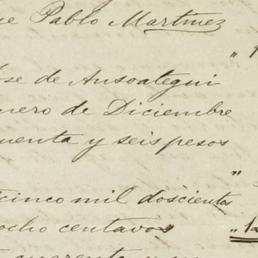 ue Pablo Martinez
se de Ansoategui
nero de Diciembre
uenta y seis pesos
cinco mil doscientos
ocho centavos